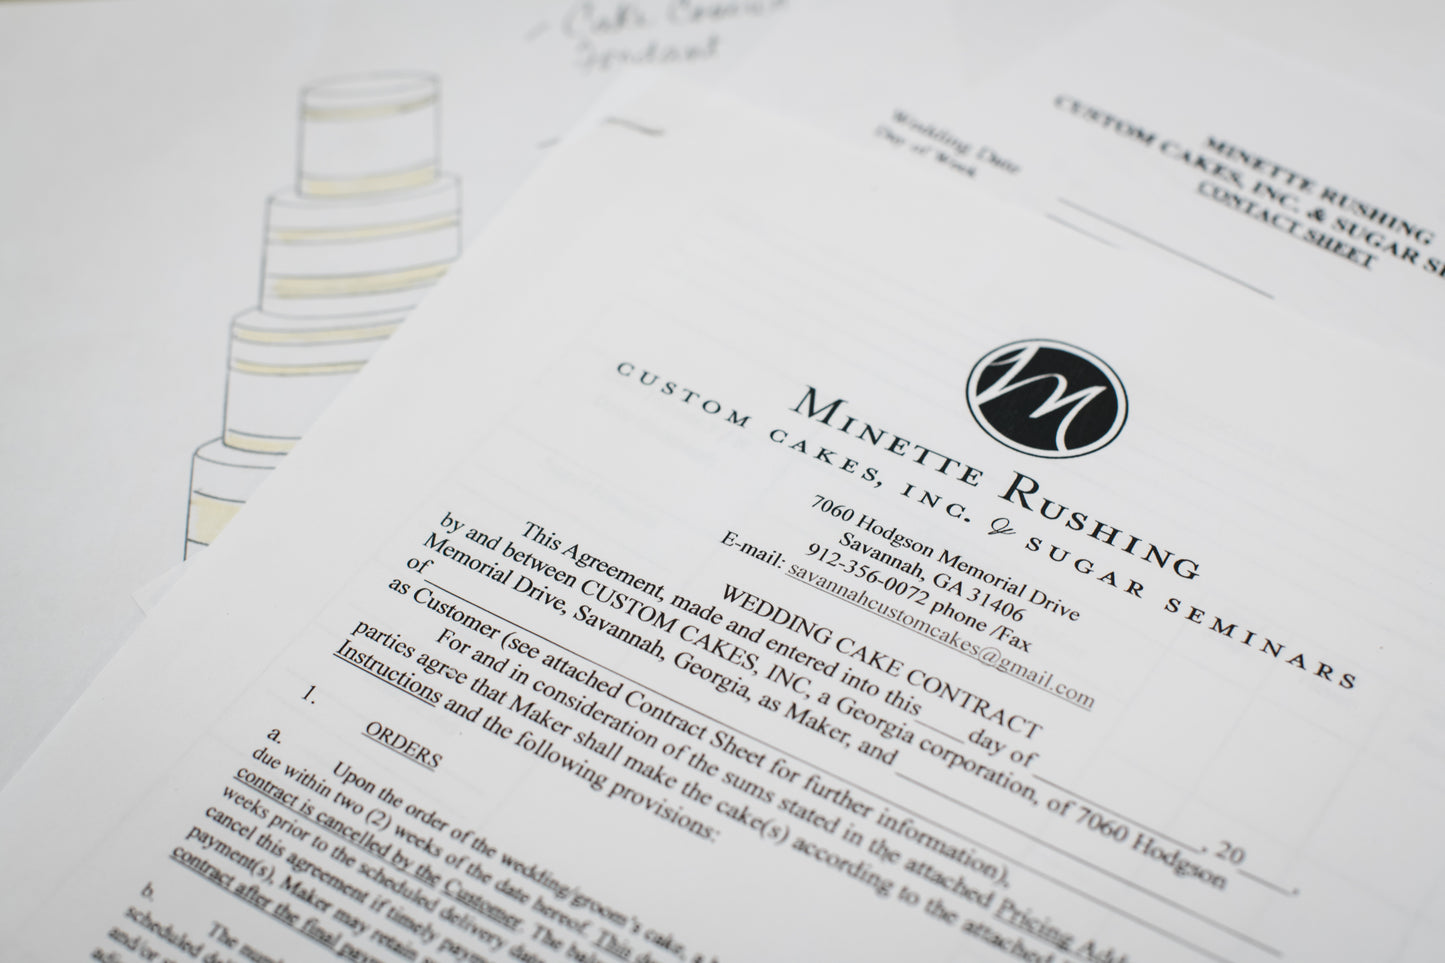 - Cake Covered
Fondant
Wedding Date
Day of Week
MINETTE RUSHING
CUSTOM CAKES, INC. & SUGAR SE
CONTACT SHEET
m
MINETTE RUSHING
CUSTOM CAKES, INC. & SUGAR SEMINARS
7060 Hodgson Memorial Drive
Savannah, GA 31406
912-356-0072 phone /Fax
E-mail: savannahcustomcakes@gmail.com
WEDDING CAKE CONTRACT
This Agreement, made and entered into this____day of ____________, 20____,
by and between CUSTOM CAKES, INC, a Georgia corporation, of 7060 Hodgson
Memorial Drive, Savannah, Georgia, as Maker, and
of
as Customer (see attached Contract Sheet for further information),
For and in consideration of the sums stated in the attached Pricing Add
parties agree that Maker shall make the cake(s) according to the attached
Instructions and the following provisions:
1. ORDERS
a. Upon the order of the wedding/groom's cake, a
due within two (2) weeks of the date hereof. This de
contract is cancelled by the Customer. The bala
weeks prior to the scheduled delivery date
cancel this agreement if timely payme
payment(s), Maker may retain
contract after the final pay
b. The num
scheduled de
and/or